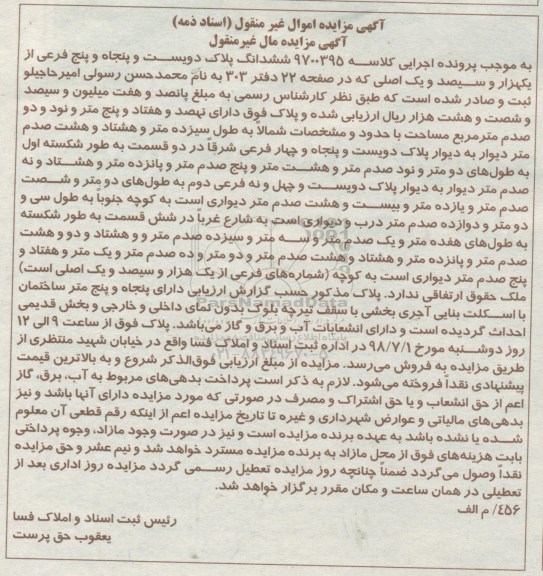 آگهی مزایده اموال غیر منقول (اسناد ذمه)
آگهی مزایده مال غیرمنقول
به موجب پرونده اجرایی کلاسه ۹۷۰۰۳۹۵ ششدانگ پلاک دویست و پنجاه و پنج فرعی از
یکهزار و سیصد و یک اصلی که در صفحه ۲۲ دفتر ۳۰۳ به نام محمدحسن رسولی امیرحاجیلو
ثبت و صادر شده است که طبق نظر کارشناس رسمی به مبلغ پانصد و هفت میلیون و سیصد
و شصت و هشت هزار ریال ارزیابی شده و پلاک فوق دارای نهصد و هفتاد و پنج متر و نود و دو
صدم مترمربع مساحت با حدود و مشخصات شمالاً به طول سیزده متر و هشتاد و هشت صدم
متر دیوار به دیوار پلاک دویست و پنجاه و چهار فرعی شرقا در دو قسمت به طور شکسته اول
به طول‌های دو متر و نود صدم متر و هشت متر و پنج صدم متر و پانزده متر و هشتاد و نه
صدم متر دیوار به دیوار پلاک دویست و چهل و نه فرعی دوم به طول‌های دو متر و شصت
صدم متر و یازده متر و بیست و هشت صدم متر دیواری است به کوچه جنوباً به طول سی و
دو متر و دوازده صدم متر درب و دیواری است به شارع غرباً در شش قسمت به طور شکسته
به طول‌های هفده متر و یک صدم متر و سه متر و سیزده صدم متر و و هشتاد و دو و هشت
صدم متر و پانزده متر و هشتاد و هشت صدم متر و دو متر و ده صدم متر و یک متر و هفتاد و
پنج صدم متر دیواری است به کوچه (شماره‌های فرعی از یک هزار و سیصد و یک اصلی است)
ملک حقوق ارتفاقی ندارد. پلاک مذکور حسب گزارش ارزیابی دارای پنجاه و پنج متر ساختمان
با اسکلت بنایی آجری بخشی با سقف تیرچه بلوک بدون نمای داخلی و خارجی و بخش قدیمی
احداث گردیده است و دارای انشعابات آب و برق و گاز می‌باشد. پلاک فوق از ساعت ۹ الی ۱۲
روز دوشنبه مورخ ۹۸/۷/۱ در اداره ثبت اسناد و املاک فسا واقع در خیابان شهید منتظری از
طریق مزایده به فروش می‌رسد. مزایده از مبلغ ارزیابی فوق‌الذکر شروع و به بالاترین قیمت
پیشنهادی نقداً فروخته می‌شود. لازم به ذکر است پرداخت بدهی‌های مربوط به آب، برق، گاز
اعم از حق انشعاب و یا حق اشتراک و مصرف در صورتی که مورد مزایده دارای آنها باشد و نیز
بدهی‌های مالیاتی و عوارض شهرداری و غیره تا تاریخ مزایده اعم از اینکه رقم قطعی آن معلوم
شده یا نشده باشد به عهده برنده مزایده است و نیز در صورت وجود مازاد، وجوه پرداختی
بابت هزینه‌های فوق از محل مازاد به برنده مزایده مسترد خواهد شد و نیم عشر و حق مزایده
نقداً وصول می‌گردد ضمناً چنانچه روز مزایده تعطیل رسمی گردد مزایده روز اداری بعد از
تعطیلی در همان ساعت و مکان مقرر برگزار خواهد شد.
۴۵۶/ م الف
رئیس ثبت اسناد و املاک فسا
یعقوب حق پرست
ParsNamadData